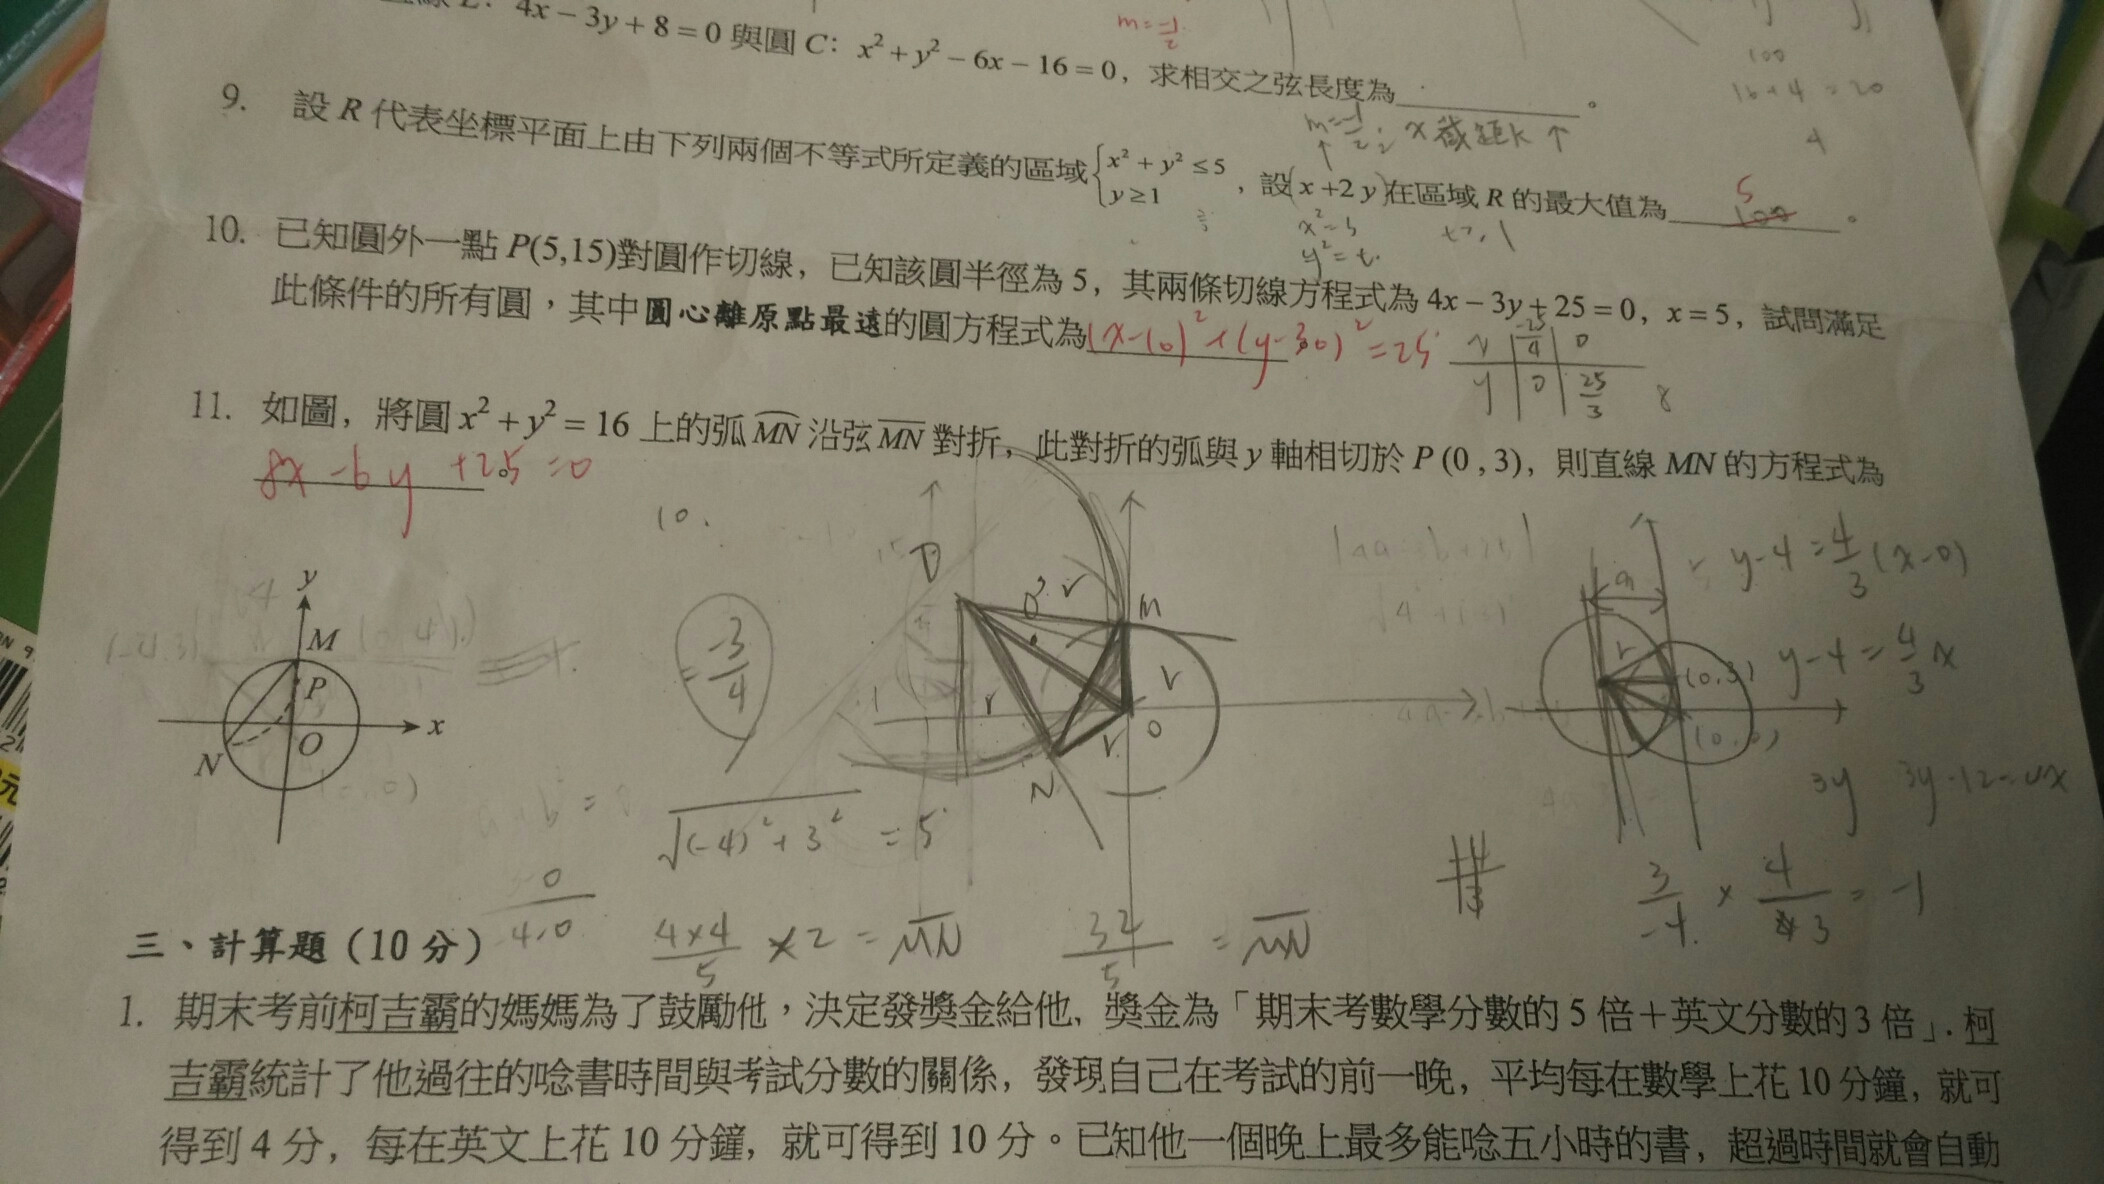 4x − 3y + 8 = 0 與圓 C：x² + y² − 6x − 16 = 0，求相交之弦長度為________。
m = -1/2
100
16+4 = 20
4
m = -1/2 x 截距 k ↑
9. 設 R 代表坐標平面上由下列兩個不等式所定義的區域 { x² + y² ≤ 5, y ≥ 1，設 (x + 2y) 在區域 R 的最大值為 5。
10. 已知圓外一點 P(5,15)對圓作切線，已知該圓半徑為 5，其兩條切線方程式為 4x − 3y + 25 = 0，x = 5，試問滿足
此條件的所有圓，其中圓心離原點最遠的圓方程式為 (x-10)² + (y-30)² = 25
11. 如圖，將圓 x² + y² = 16 上的弧 MN 沿弦 MN 對折，此對折的弧與 y 軸相切於 P (0 , 3)，則直線 MN 的方程式為
8x - 6y + 25 = 0
10.
y
M
P
O
x
N
= -3/4
O'
r
M
r
r
r
O
N
a
r
(0,3)
(0,0)
y-4 = 4/3 (x-0)
y-4 = 4/3 x
3y 3y-12 =
√((-4)² + 3²) = 5
3/-4 × 4/3 = -1
4×4/5 × 2 = MN
32/5 = MN
三、計算題（10 分）
1. 期末考前柯吉霸的媽媽為了鼓勵他，決定發獎金給他，獎金為「期末考數學分數的 5 倍＋英文分數的 3 倍」. 柯
吉霸統計了他過往的唸書時間與考試分數的關係，發現自己在考試的前一晚，平均每在數學上花 10 分鐘，就可
得到 4 分，每在英文上花 10 分鐘，就可得到 10 分。已知他一個晚上最多能唸五小時的書，超過時間就會自動